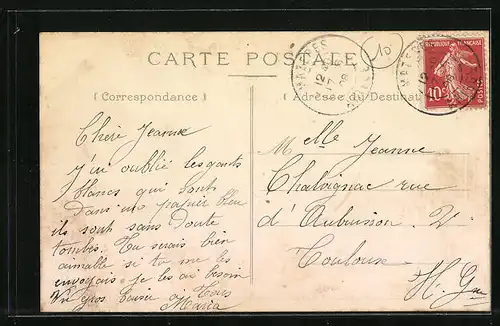 CARTE POSTALE
( Correspondance )
( Adresse du Destinat
10
MAZERES
12
17
08
REPUBLIQUE FRANÇAISE
10c
POSTES
Chère Jeanne
J'ai oublié les gants
blancs qui sont
Dans un papier bleu
ils sont sans Doute
tombés. Tu serais bien
aimable si tu me les
envoyais je les ai besoin
Un gros baiser à
Maria
Melle Jeanne
Chalvignac rue
d'Aubuisson. V.
Toulouse
H. Gne